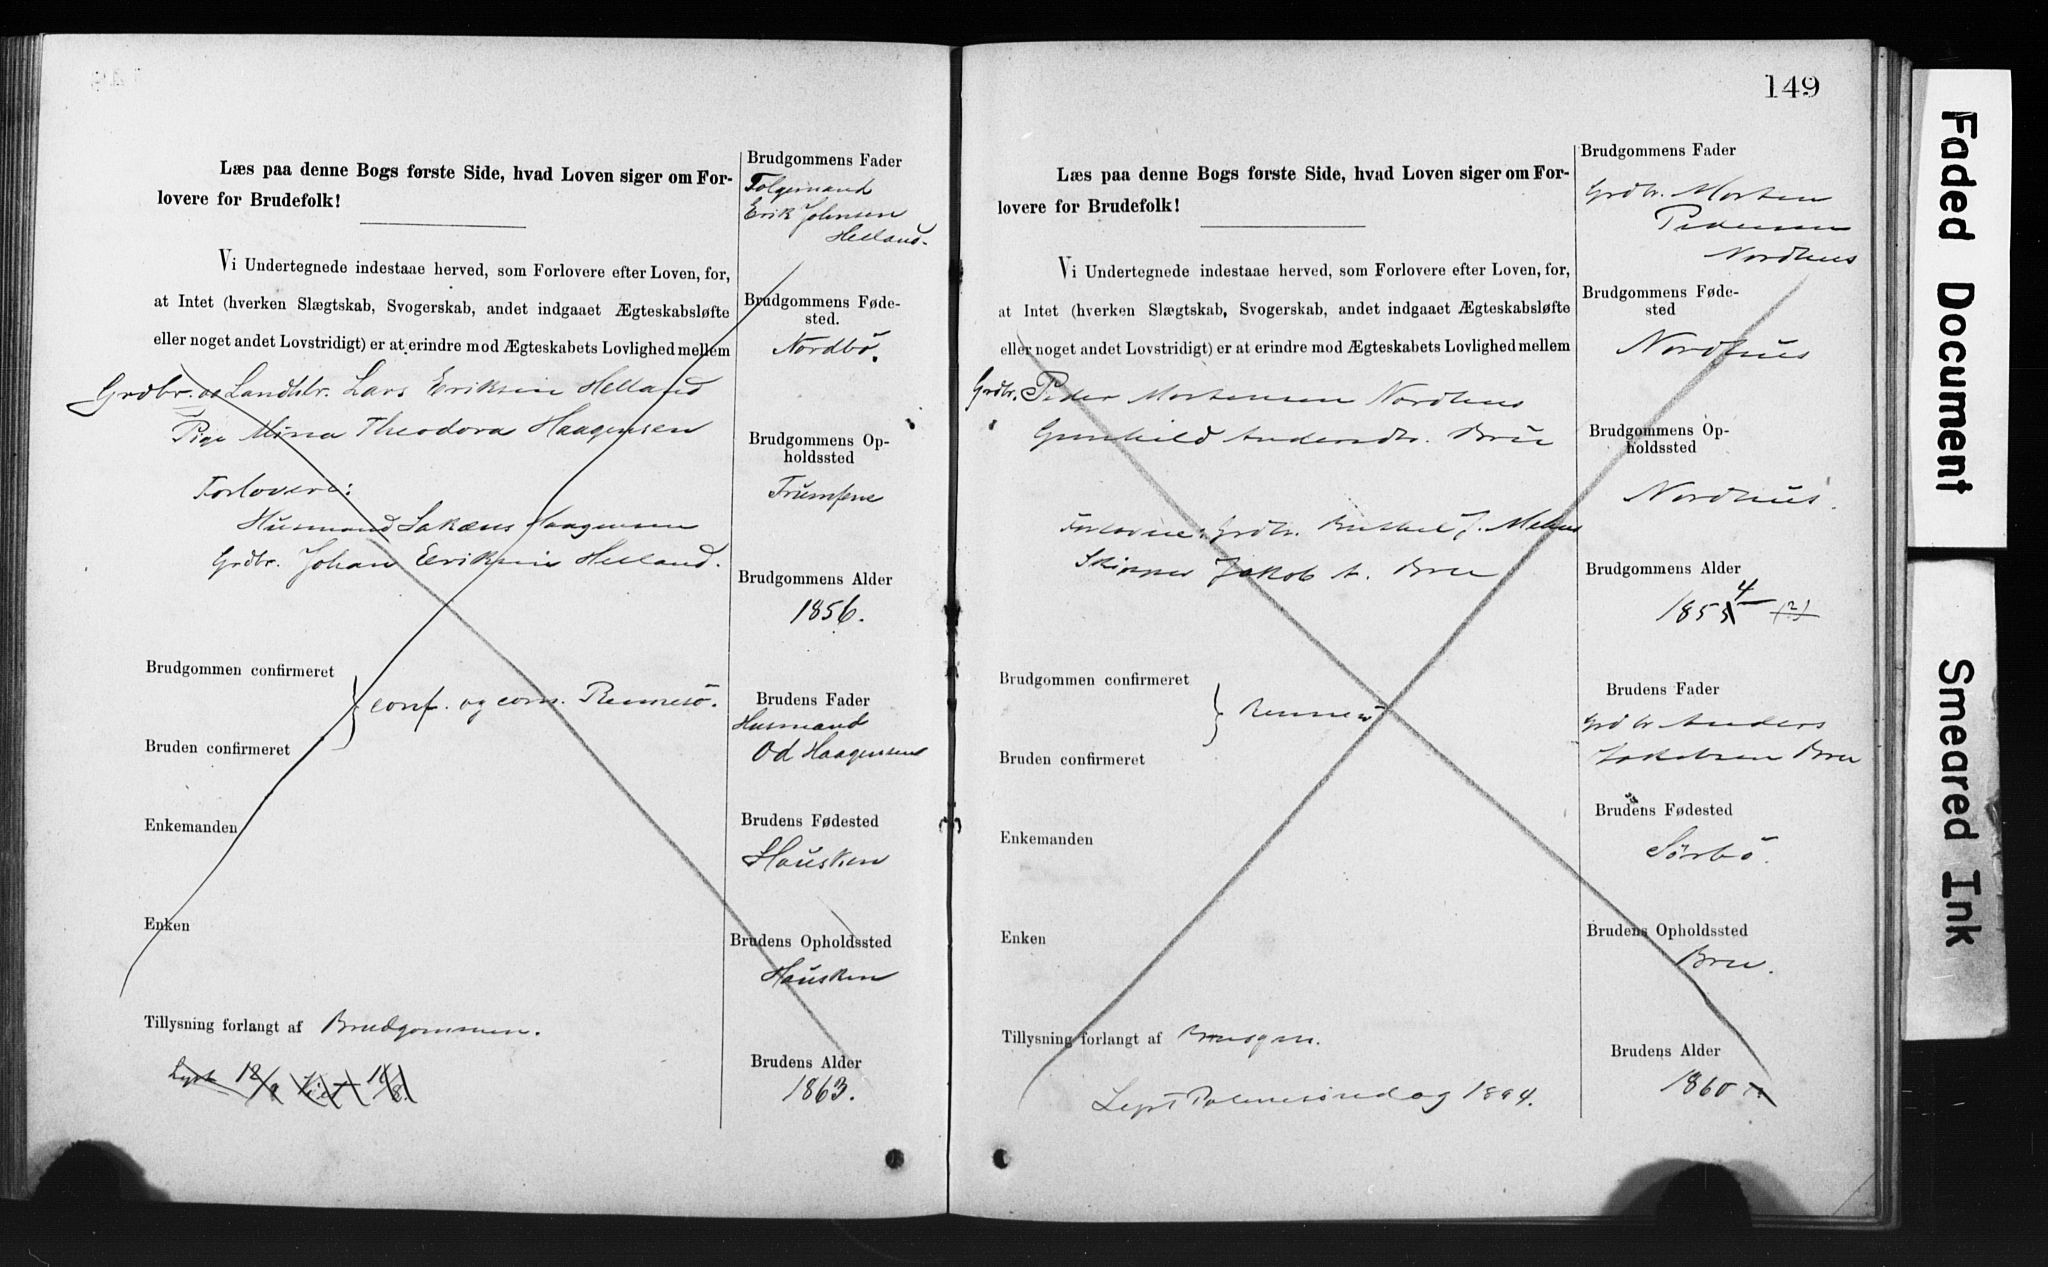 Læs paa denne Bogs første Side, hvad Loven siger om For-
lovere for Brudefolk!
Vi Undertegnede indestaae herved, som Forlovere efter Loven, for,
at Intet (hverken Slægtskab, Svogerskab, andet indgaaet Ægteskabsløfte
eller noget andet Lovstridigt) er at erindre mod Ægteskabets Lovlighed mellem
Grdbr. og Landhdr. Lars Eriksen Helland
Pige Mina Theodora Haagensen
Forlovere:
Husmand Haagensen
Grdbr. Johan Eriksen Helland.
Brudgommen confirmeret
conf. og com. Rennesö.
Bruden confirmeret
Enkemanden
Enken
Tillysning forlangt af Brudgommen.
Lyst 12/8
Brudgommens Fader
Erik Johnsen
Helland.
Brudgommens Føde-
sted.
Nordbö.
Brudgommens Op-
holdssted
Brudgommens Alder
1856.
Brudens Fader
Husmand
Od Haagensen
Brudens Fødested
Hausken
Brudens Opholdssted
Hausken
Brudens Alder
1863.
149
Læs paa denne Bogs første Side, hvad Loven siger om For-
lovere for Brudefolk!
Vi Undertegnede indestaae herved, som Forlovere efter Loven, for,
at Intet (hverken Slægtskab, Svogerskab, andet indgaaet Ægteskabsløfte
eller noget andet Lovstridigt) er at erindre mod Ægteskabets Lovlighed mellem
Grdbr. Peder Mortensen Nordhus
Gunhild Andersdtr. Bru
Forlovere: Grdbr.
Skipper Jakob A. Bru
Brudgommen confirmeret
Rennesö
Bruden confirmeret
Enkemanden
Enken
Tillysning forlangt af Brudgm.
Lyst Palmesöndag 1894.
Brudgommens Fader
Grdbr. Morten
Pedersen
Nordhus
Brudgommens Føde-
sted
Nordhus
Brudgommens Op-
holdssted
Nordhus.
Brudgommens Alder
1854 (?)
Brudens Fader
Grdbr Anders
Jakobsen Bru
Brudens Fødested
Sörbö.
Brudens Opholdssted
Bru.
Brudens Alder
1860
Faded Document
Smeared Ink